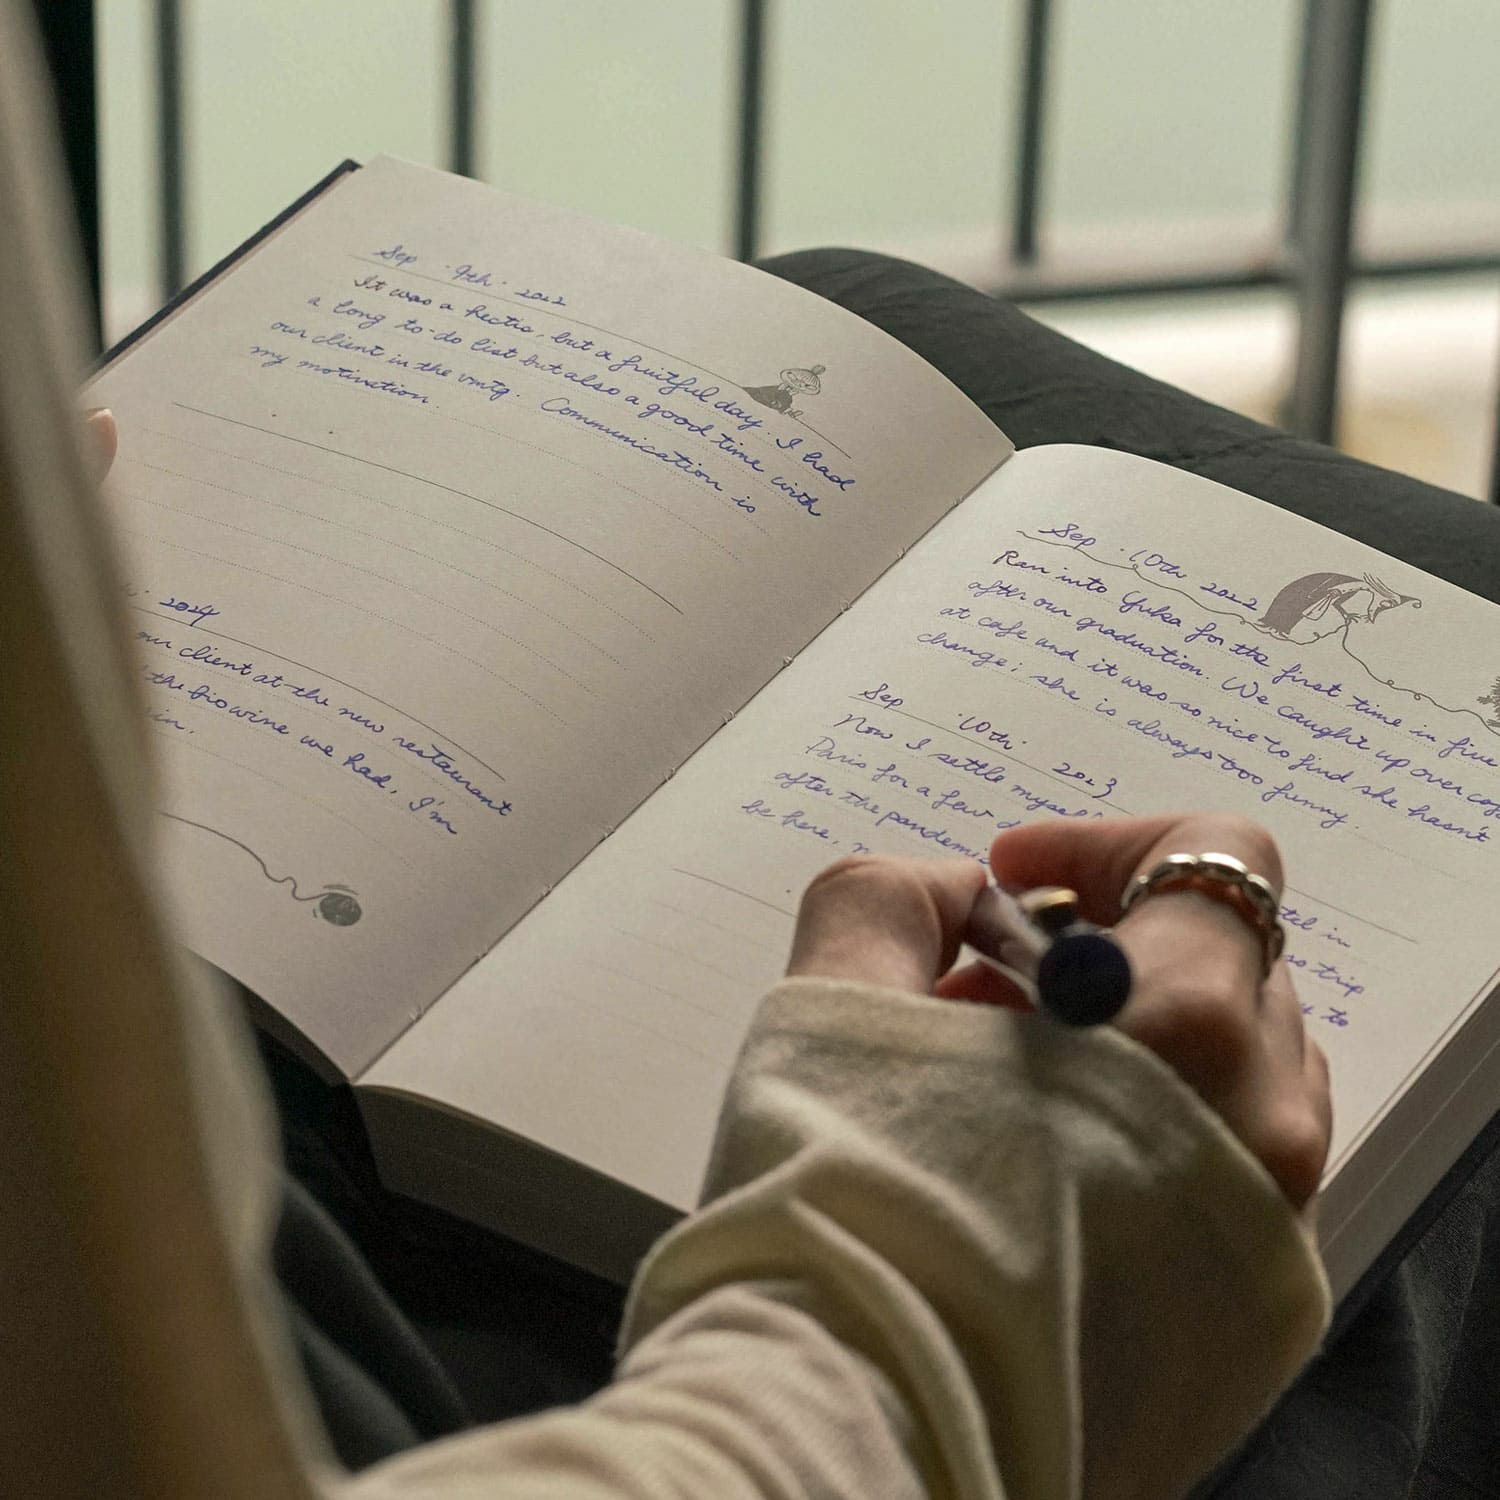 Sep . 9th . 2022
It was a hectic, but a fruitful day. I had
a long to-do list but also a good time with
our client in the vmtg. Communication is
my motivation.
2024
our client at the new restaurant
the bio wine we had, I'm
in.
Sep . 10th 2022
Ran into Yuka for the first time in five
after our graduation. We caught up over
at cafe and it was so nice to find she hasn't
change; she is always too funny.
Sep . 10th . 2023
Now I settle
in
Paris for a few
trip
after the pandemic
to
be here,